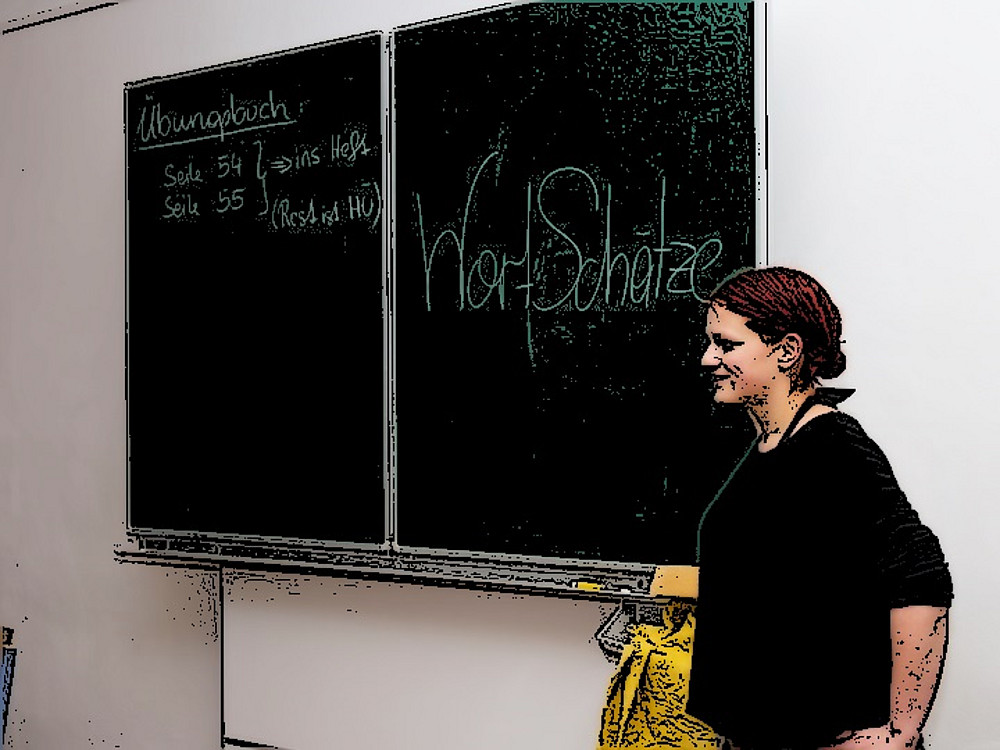 Übungsbuch:
Seite 54 } ⇒ ins Heft
Seite 55 } (Rest ist HÜ)
WortSchätze